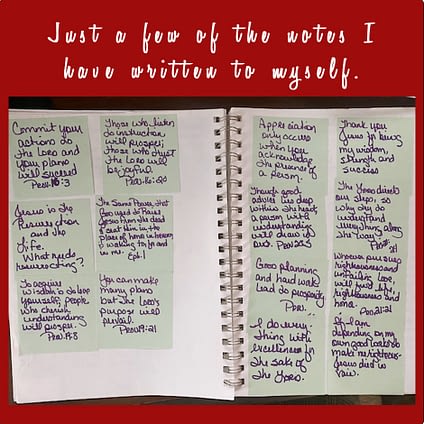 Just a few of the notes I
have written to myself.
Commit your
actions to do
the Lord and
your plans
will succeed
Prov. 16:3
Those who listen
to instruction
will prosper;
those who trust
the Lord will
be joyful.
Prov. 16:20
Jesus is the
Resurrection
and the
Life.
What needs
resurrecting?
The Same Power that
God used to Raise
Jesus from the dead
& seat him in the
place of honor in heaven
is working for you and
in me. Eph. 1
To acquire
wisdom is to love
yourself; people
who cherish
understanding
will prosper.
Prov. 19:8
You can make
many plans
but the Lord's
purpose will
prevail.
Prov 19:21
Appreciation
only occurs
when you
acknowledge
the presence of
a person.
Though good
advice lies deep
within the heart
a person with
understanding
will draw it
out. Prov 20:5
Good planning
and hard work
lead to prosperity
Prov.
I do every-
thing with
excellence for
the sake of
the Lord.
Thank you
Jesus for being
my wisdom,
strength and
success
The Lord directs
our steps, so
why try to
understand
everything along
the way?
Whoever pursues
righteousness and
unfailing love
will find life
righteousness and
honor.
Prov 21:21
If I am
depending on my
own good works to
make me righteous
Jesus died in
vain.